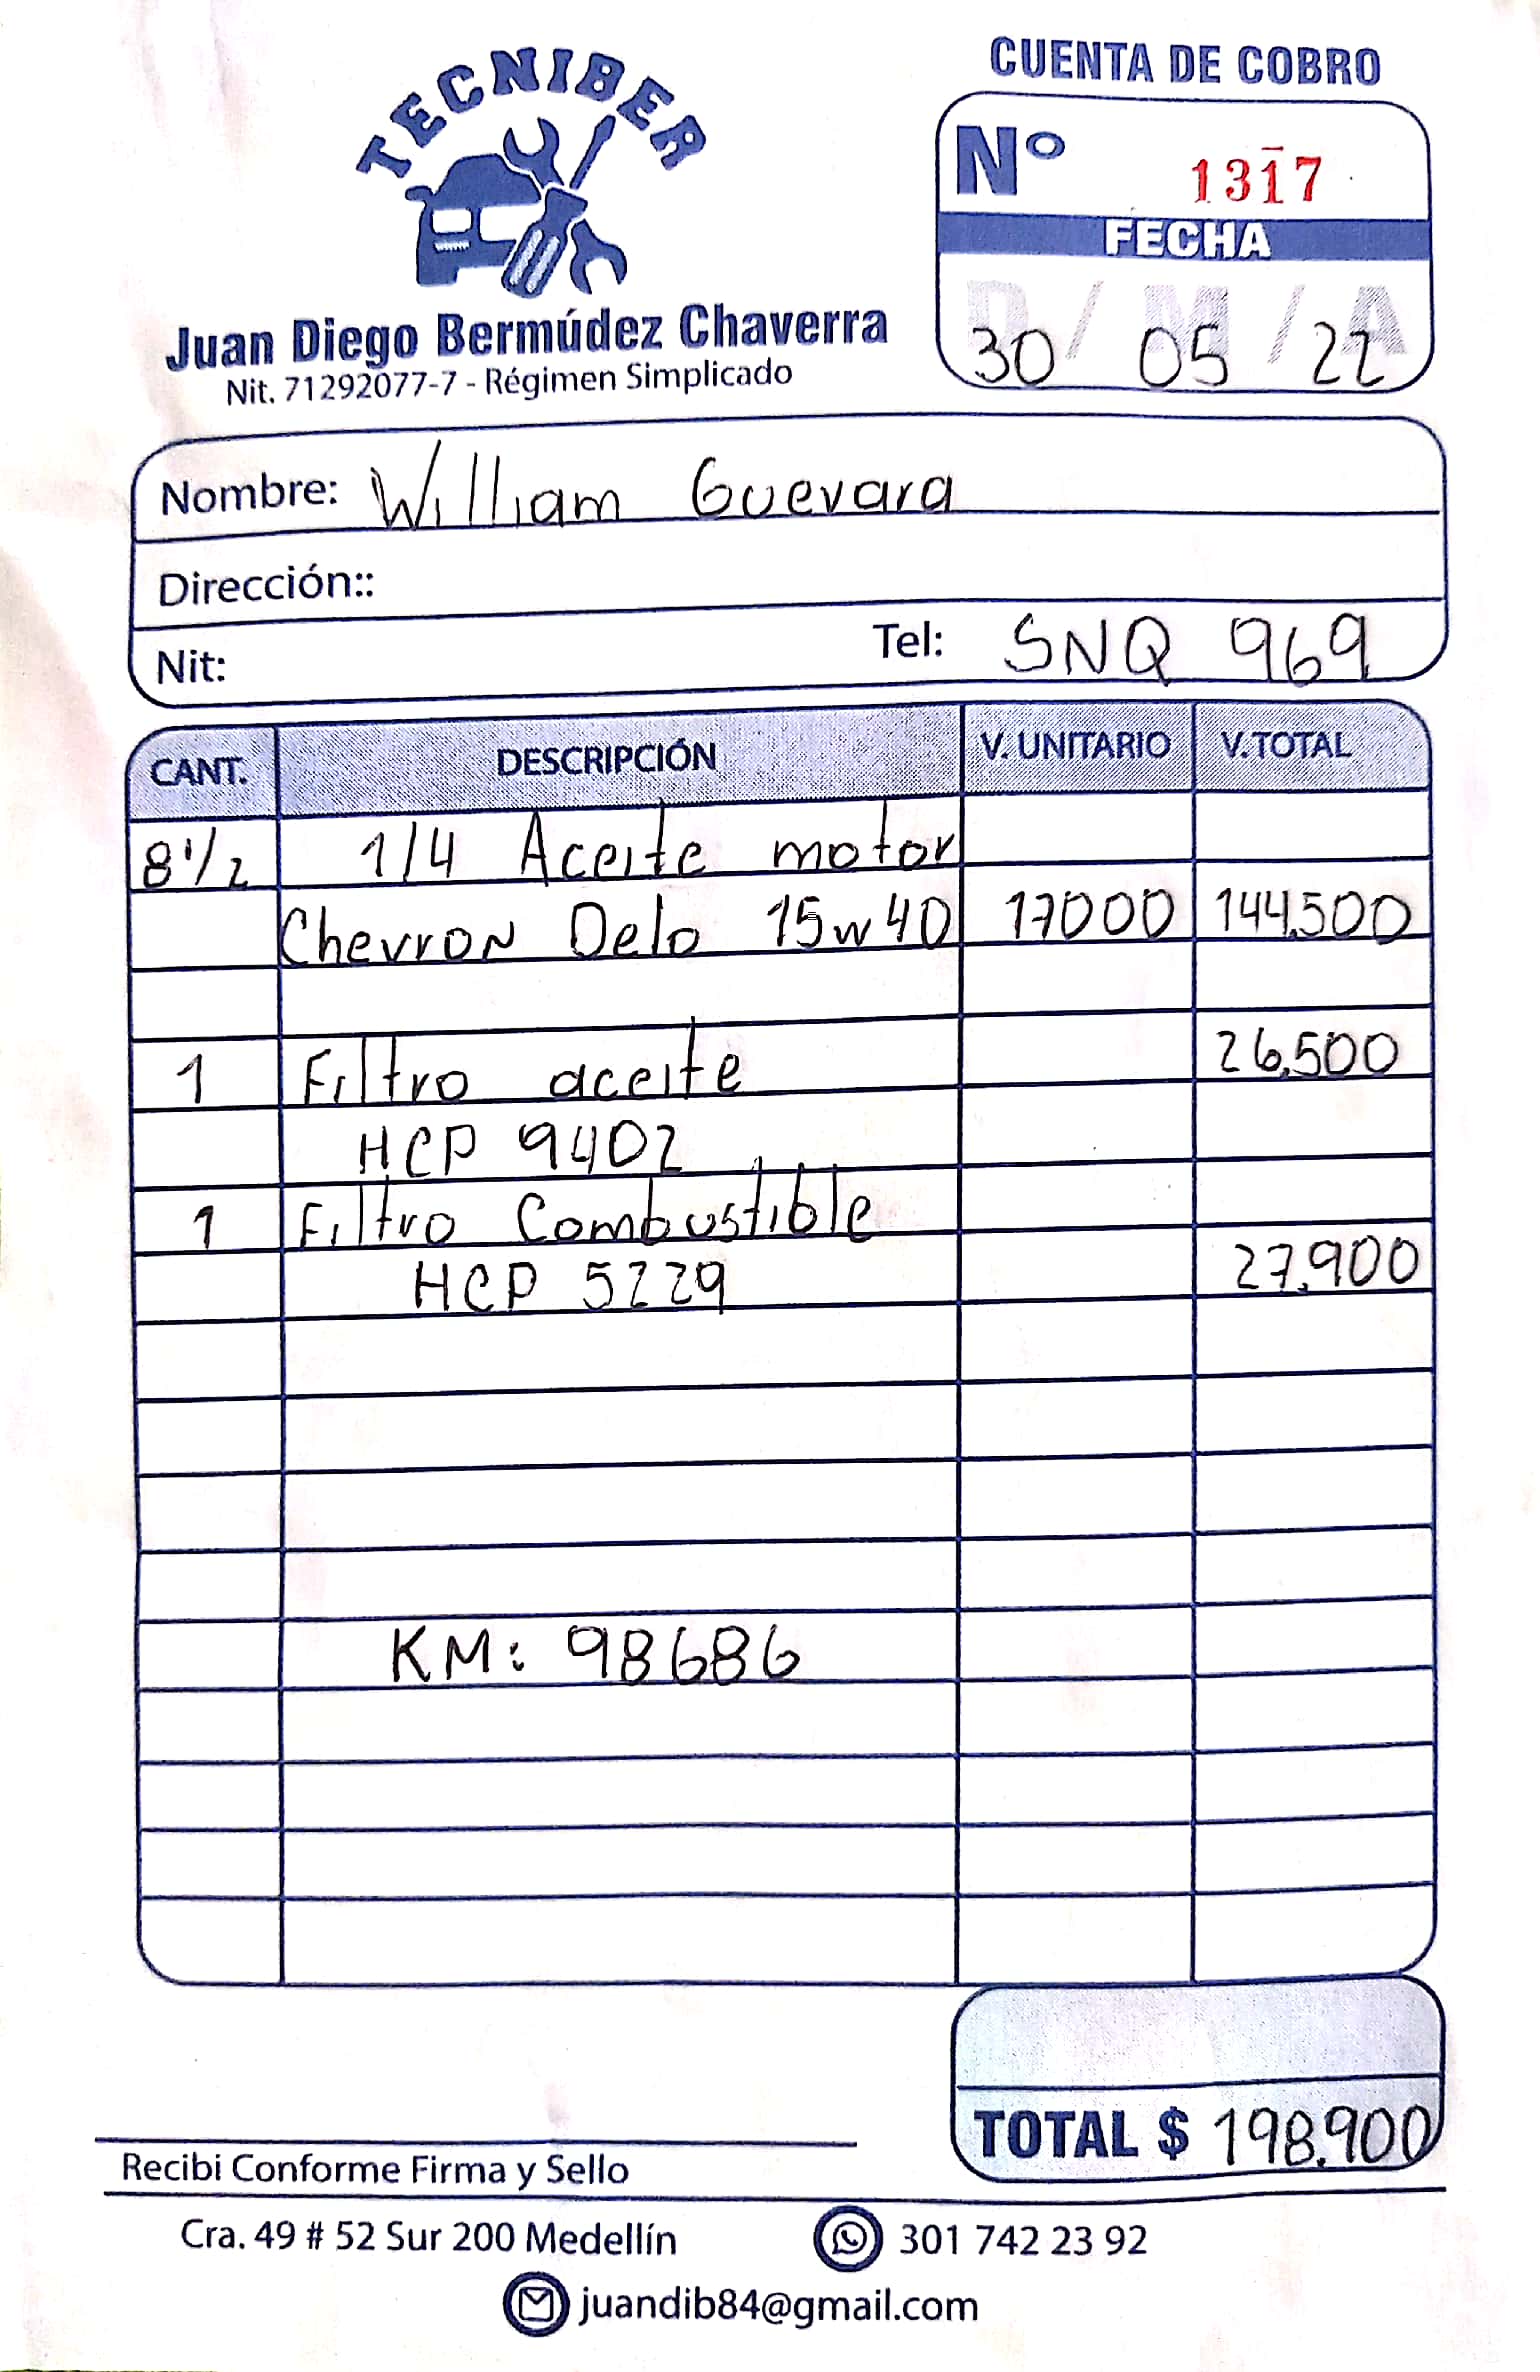 TECNIBER
CUENTA DE COBRO
Nº 1317
FECHA
D / M / A
30 05 22
Juan Diego Bermúdez Chaverra
Nit. 71292077-7 - Régimen Simplicado
Nombre: William Guevara
Dirección::
Nit: Tel: SNQ 969
CANT. DESCRIPCIÓN V. UNITARIO V.TOTAL
8 1/2 1/4 Aceite motor
Chevron Delo 15w40 17000 144.500
1 Filtro aceite 26.500
HCP 9402
1 Filtro Combustible
HCP 5229 27.900
KM: 98686
TOTAL $ 198.900
Recibi Conforme Firma y Sello
Cra. 49 # 52 Sur 200 Medellín 301 742 23 92
juandib84@gmail.com